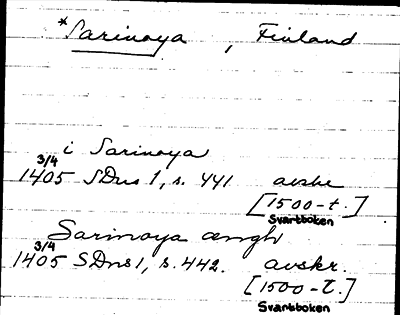 *Sarinoya, Finland
i Sarinoya
3/4
1405 SDns 1, s. 441 avskr
[1500-t.]
Svartboken
Sarinoya ængh
3/4
1405 SDns 1, s. 442. avskr.
[1500-t.]
Svartboken